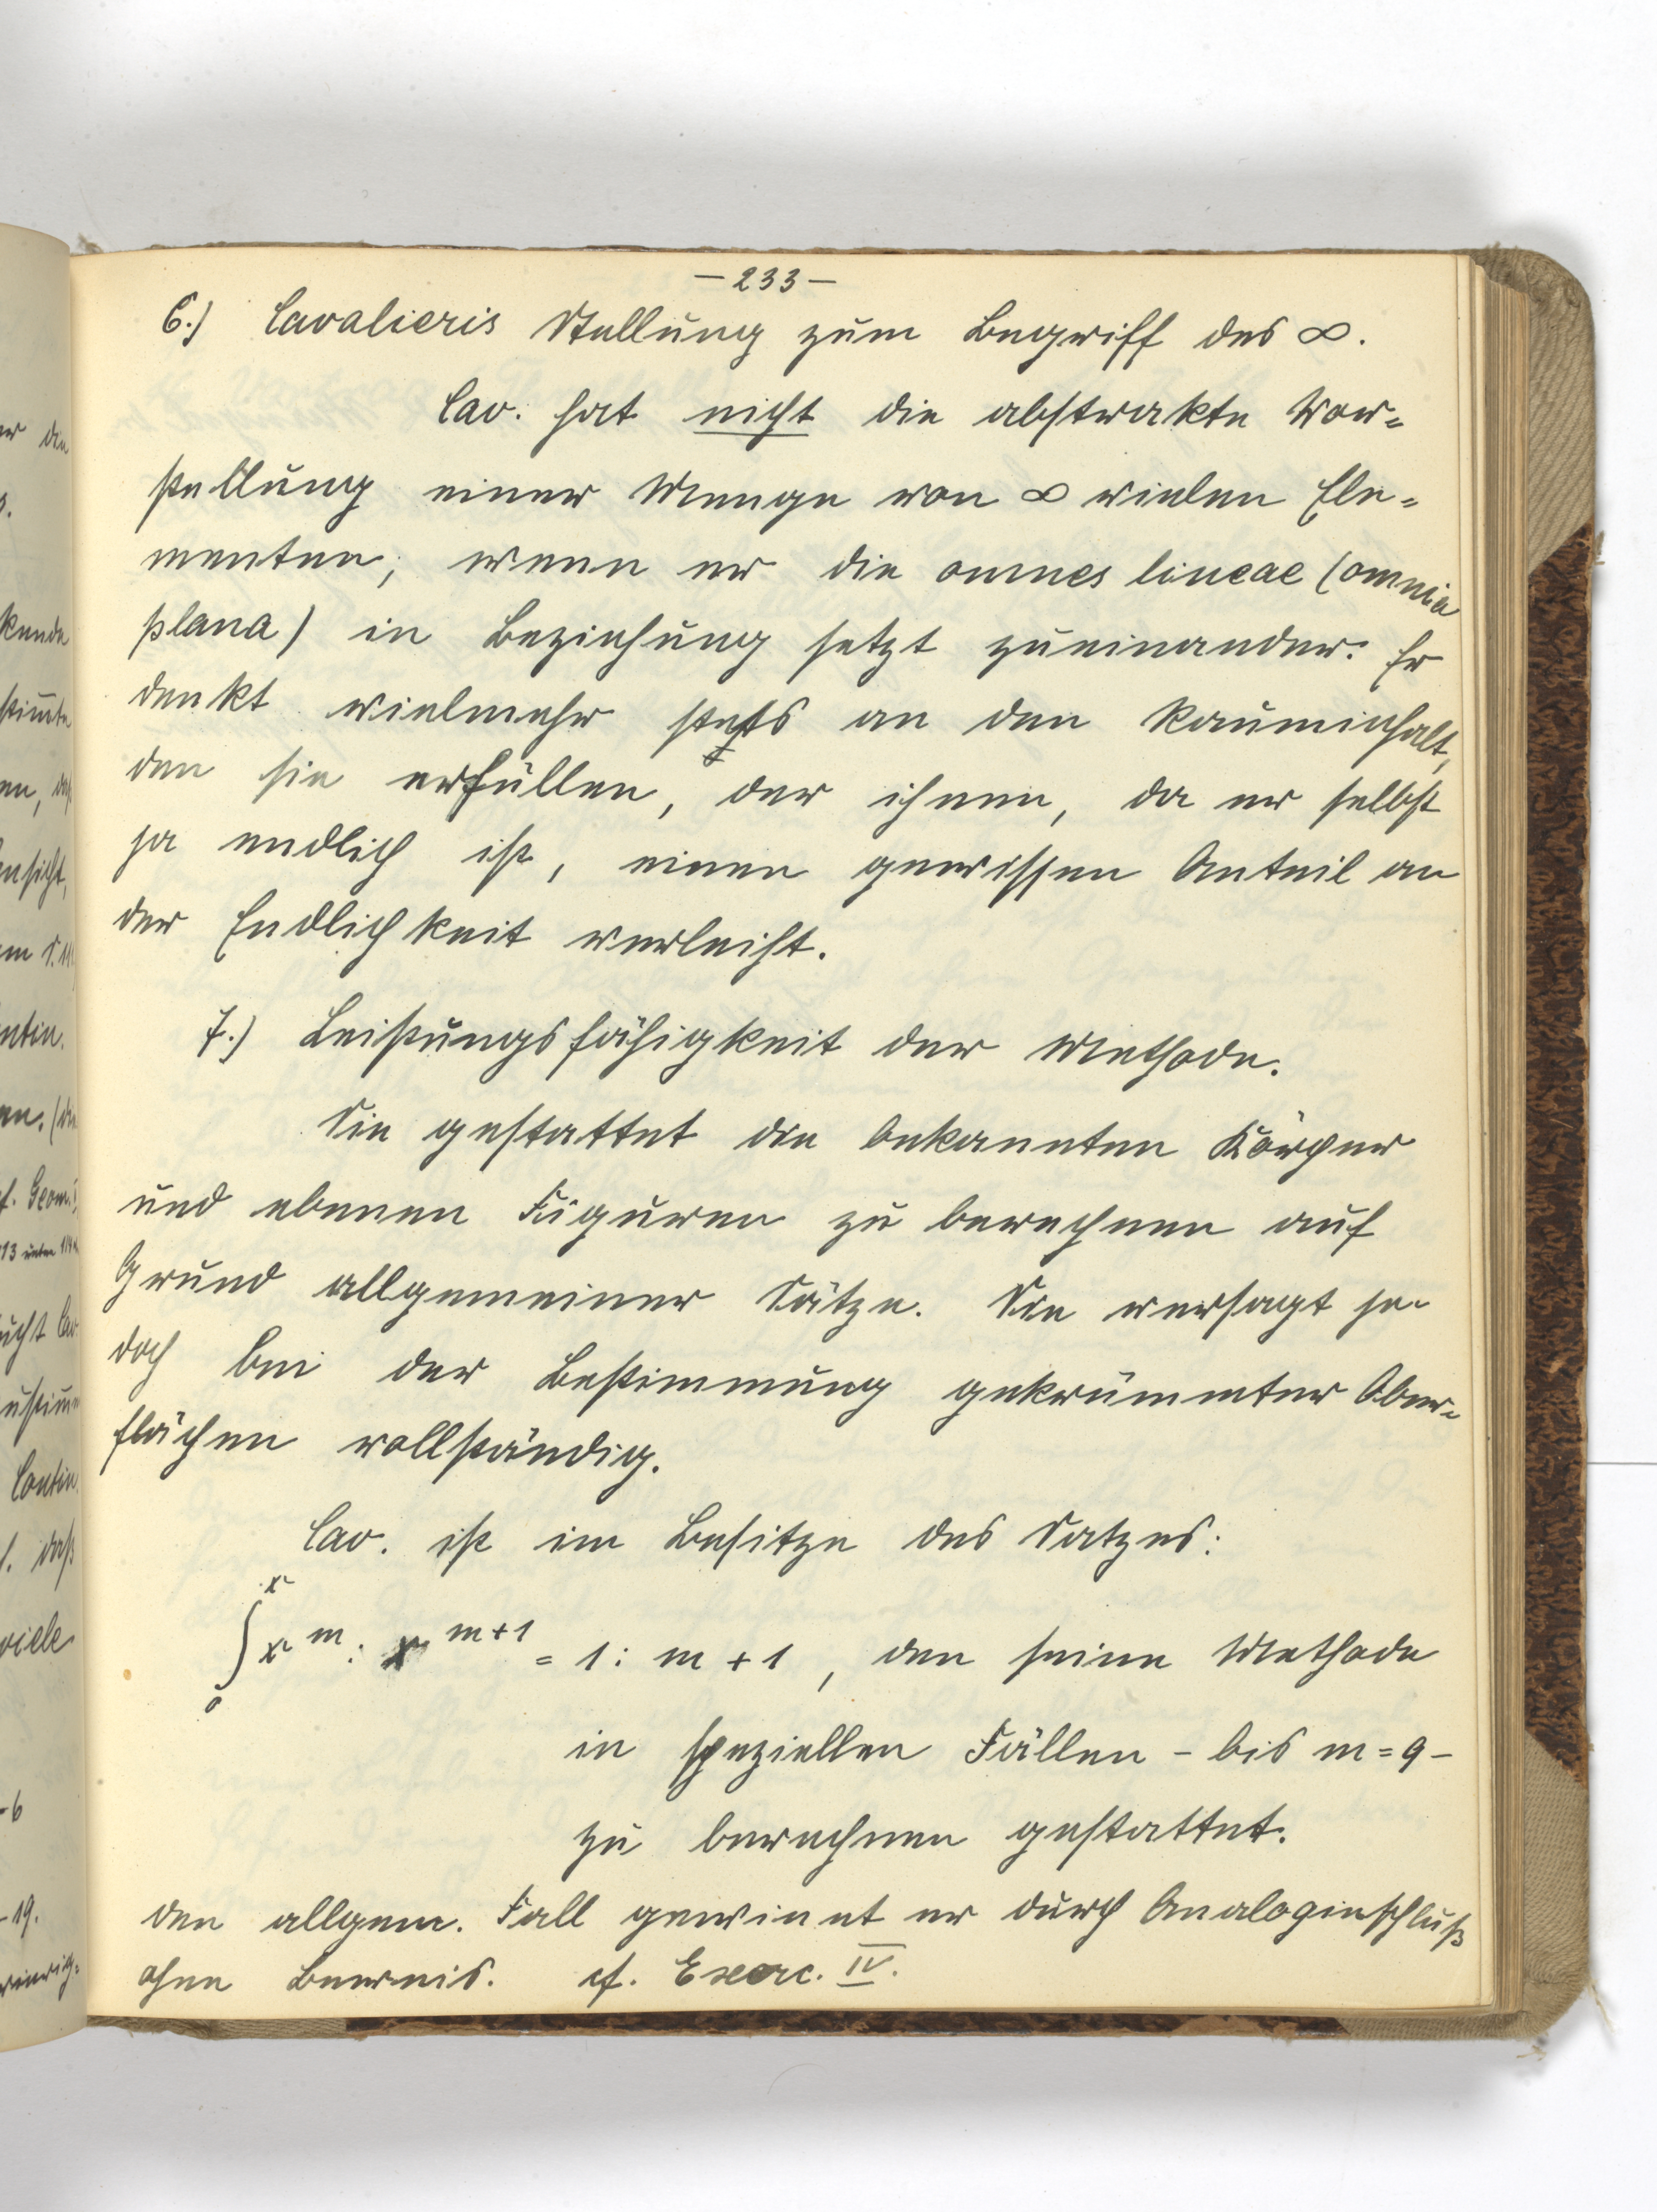 — 233 —
6.) Cavalieris Stellung zum Begriff des ∞.
Cav. hat nicht die abstrakte Vor-
stellung einer Menge von ∞ vielen Ele-
menten, wenn er die omnes lineae (omnia
plana) in Beziehung setzt zueinander. Er
denkt vielmehr stets an den Rauminhalt,
den sie erfüllen, der ihnen, da er selbst
ja endlich ist, einen gewissen Anteil an
der Endlichkeit verleiht.
7.) Leistungsfähigkeit der Methode.
Sie gestattet die bekannten Körper
und ebenen Figuren zu berechnen auf
Grund allgemeiner Sätze. Sie versagt je-
doch bei der Bestimmung gekrümmter Ober-
flächen vollständig.
Cav. ist im Besitze des Satzes:
∫₀ˣ x^m : x^{m+1} = 1 : m + 1, den seine Methode
in speziellen Fällen – bis m = 9 –
zu berechnen gestattet.
den allgem. Fall gewinnt er durch Analogieschluß
ohne Beweis. cf. Exerc. IV.